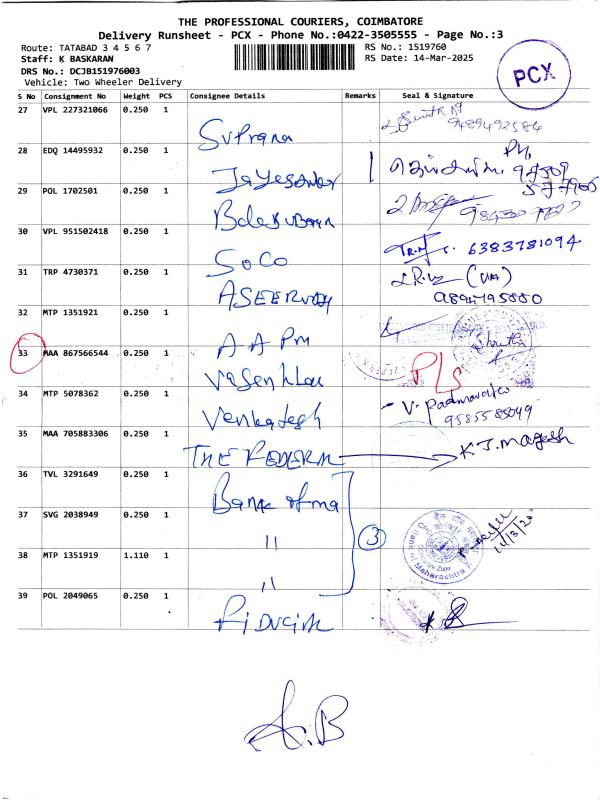 THE PROFESSIONAL COURIERS, COIMBATORE
Delivery Runsheet - PCX - Phone No.:0422-3505555 - Page No.:3
Route: TATABAD 3 4 5 6 7
RS No.: 1519760
Staff: K BASKARAN
RS Date: 14-Mar-2025
DRS No.: DCJB151976003
Vehicle: Two Wheeler Delivery
PCX
S No Consignment No Weight PCS Consignee Details Remarks Seal & Signature
27 VPL 227321066 0.250 1 Suprana 9489492584
28 EDQ 14495932 0.250 1 Jayeswar
29 POL 1702501 0.250 1 Balasubram
30 VPL 951502418 0.250 1 SoCo 6383781094
31 TRP 4730371 0.250 1 ASEERVAD 9894795880
32 MTP 1351921 0.250 1 AAPM
33 MAA 867566544 0.250 1 PLS
34 MTP 5078362 0.250 1 Venkatesh V. Padmavathi 9585585049
35 MAA 705883306 0.250 1 THE FEDERAL K.J. Magesh
36 TVL 3291649 0.250 1 Bank of ma
37 SVG 2038949 0.250 1 " 3 Bank of Maharashtra
38 MTP 1351919 1.110 1 "
39 POL 2049065 0.250 1
A.B